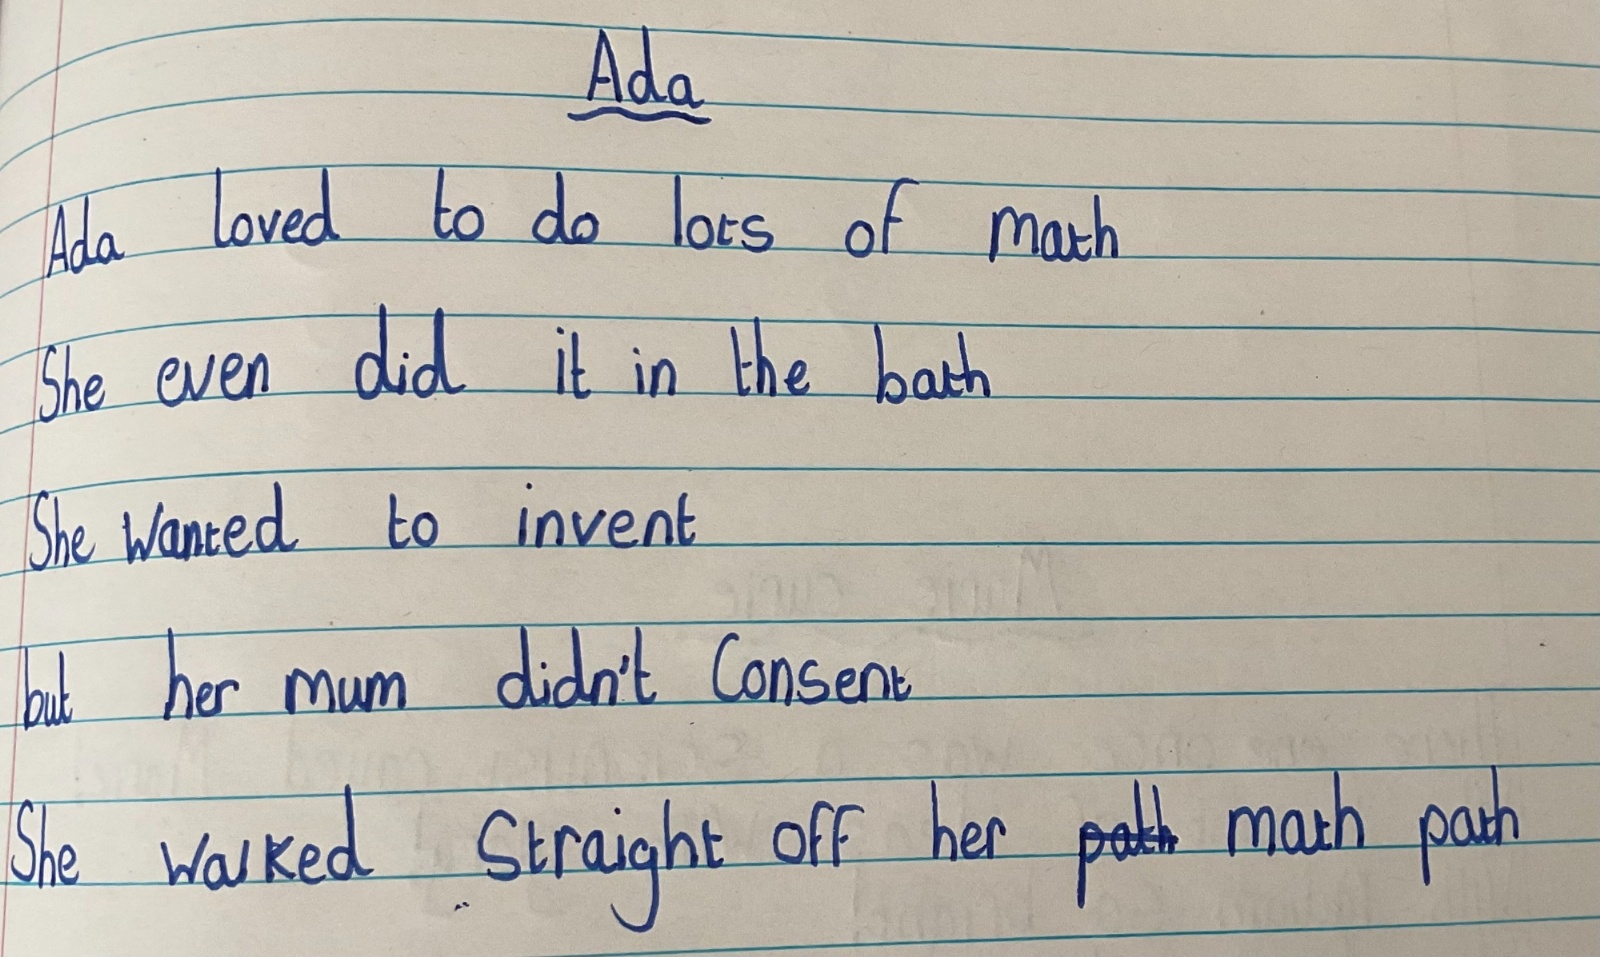 Ada
Ada loved to do lots of math
She even did it in the bath
She wanted to invent
but her mum didn't Consent
She walked Straight off her path math path